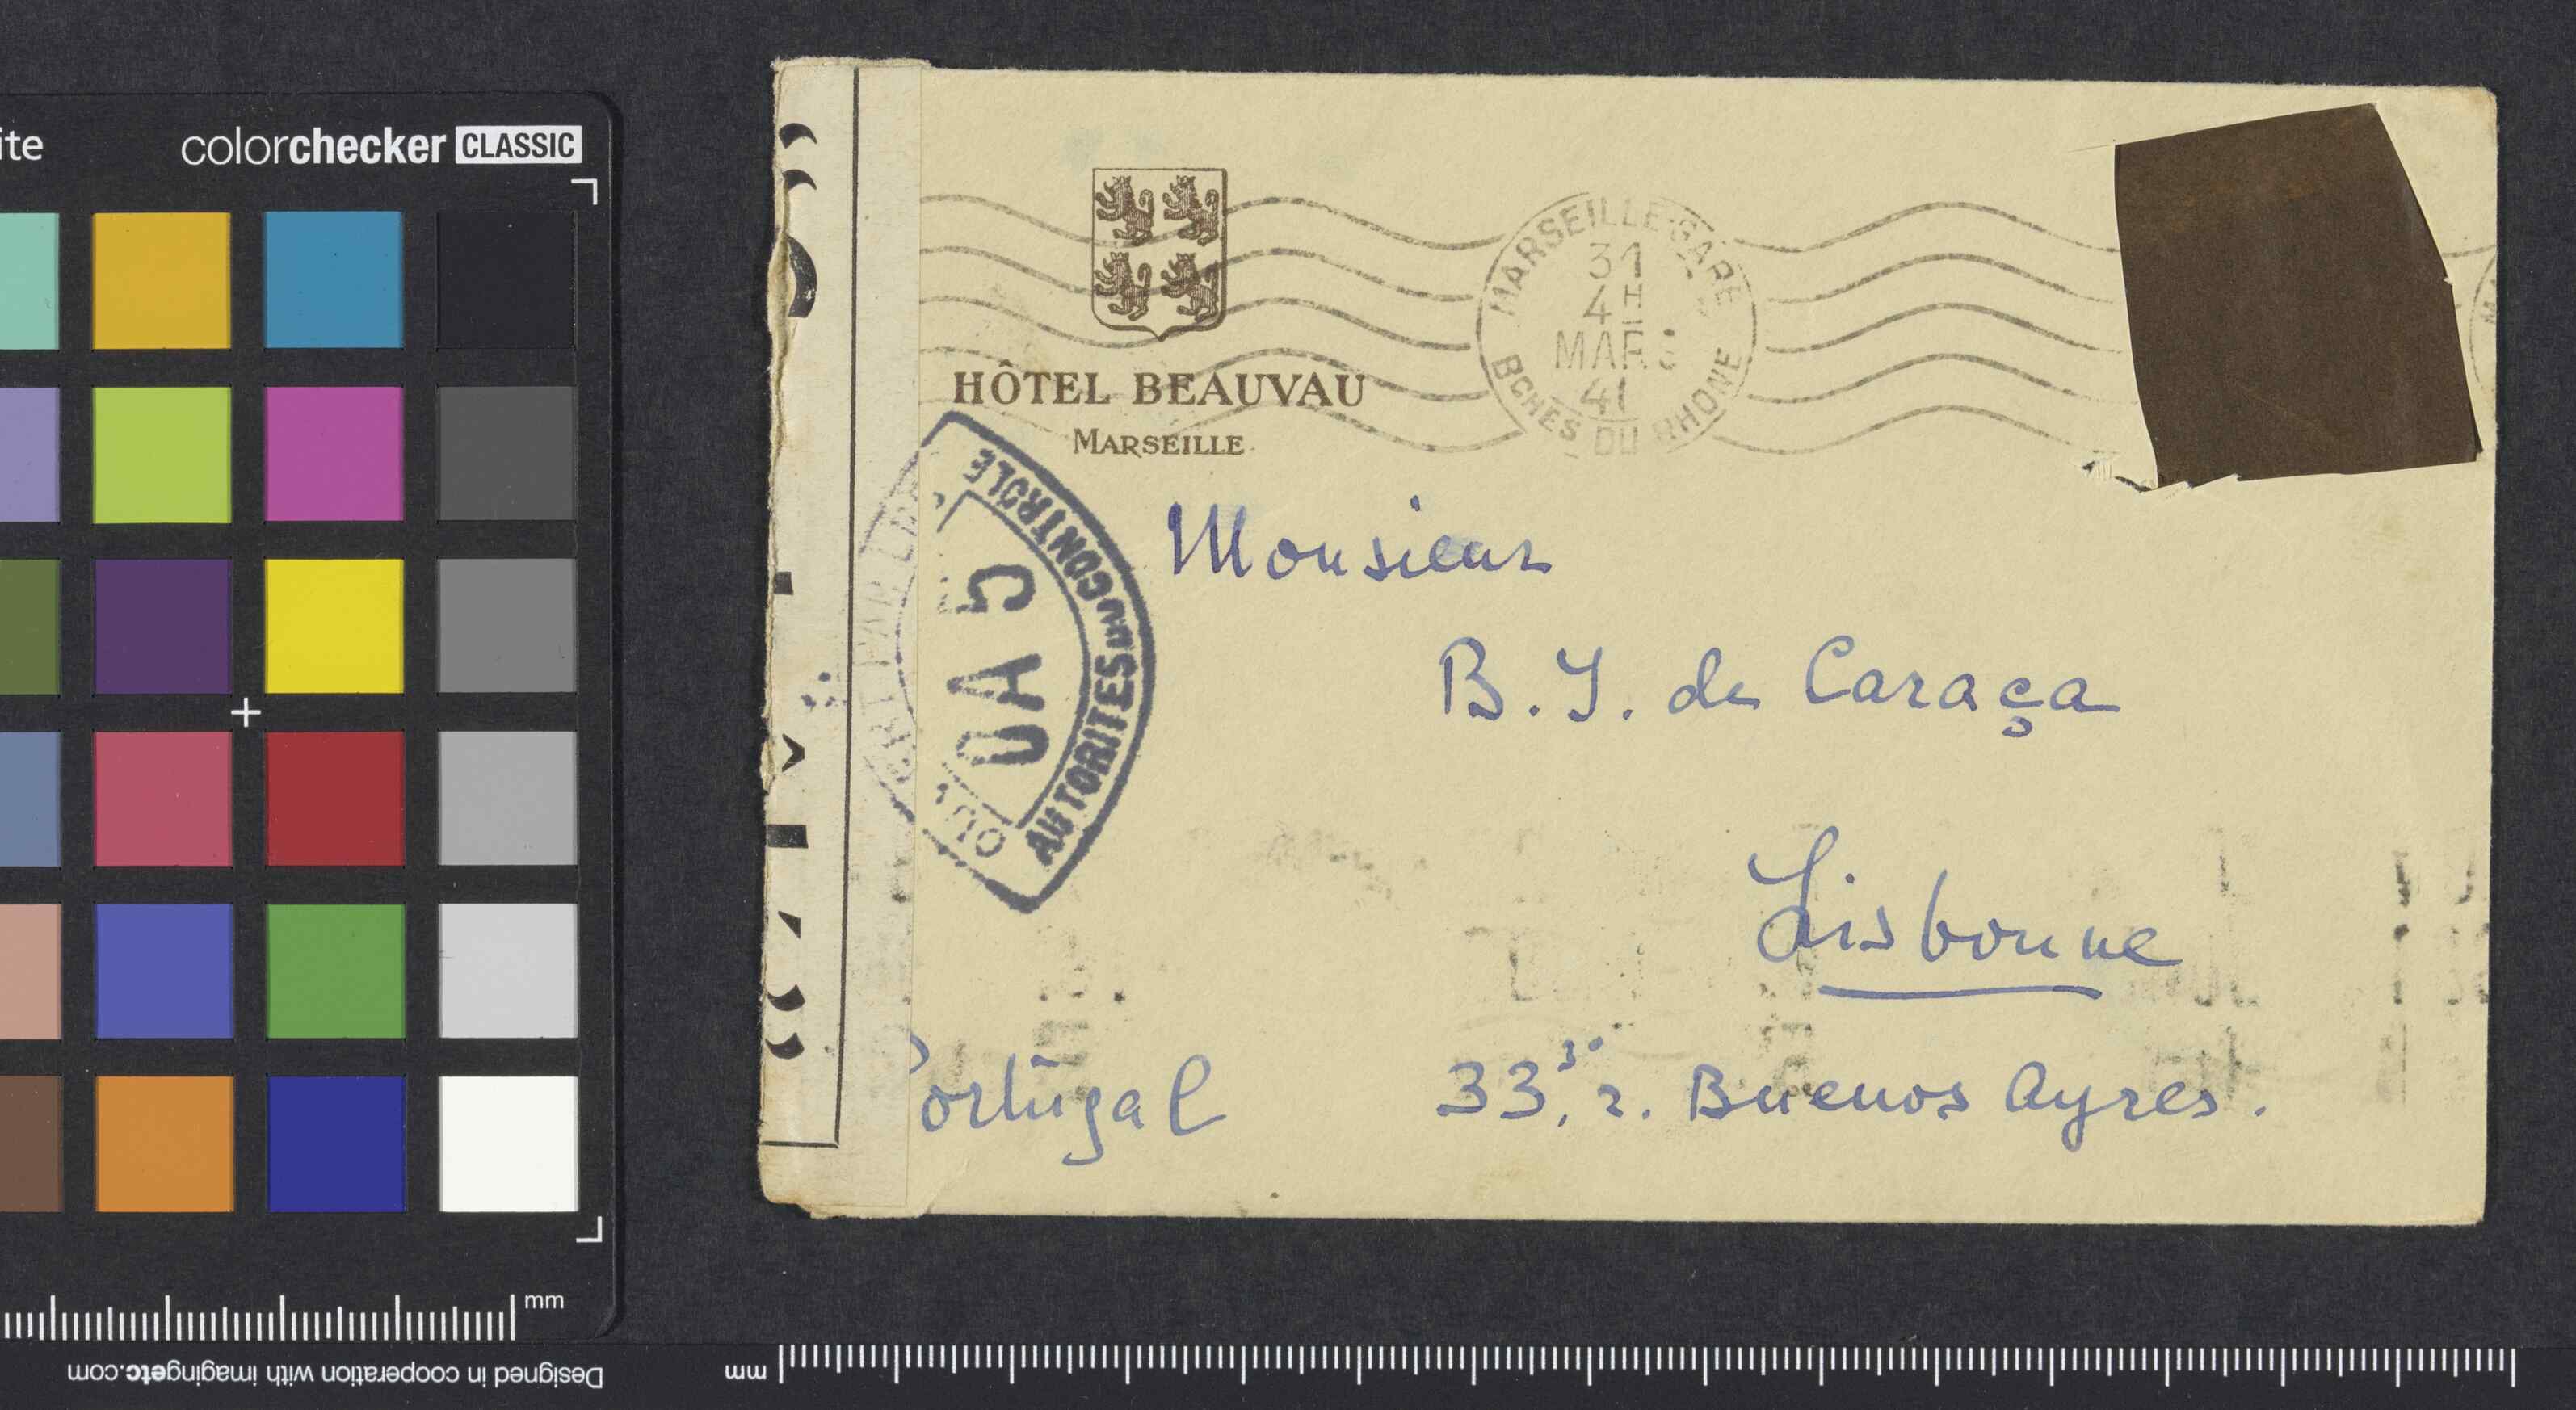 ite colorchecker CLASSIC
mm
Designed in cooperation with imagingetc.com
mm
HÔTEL BEAUVAU
MARSEILLE
MARSEILLE GARE
31
4H
MARS
41
BCHES DU RHONE
OUVERT PAR LES
AUTORITES DU CONTROLE
Monsieur
B. J. de Caraça
Lisbonne
Portugal 33, r. Buenos Ayres.